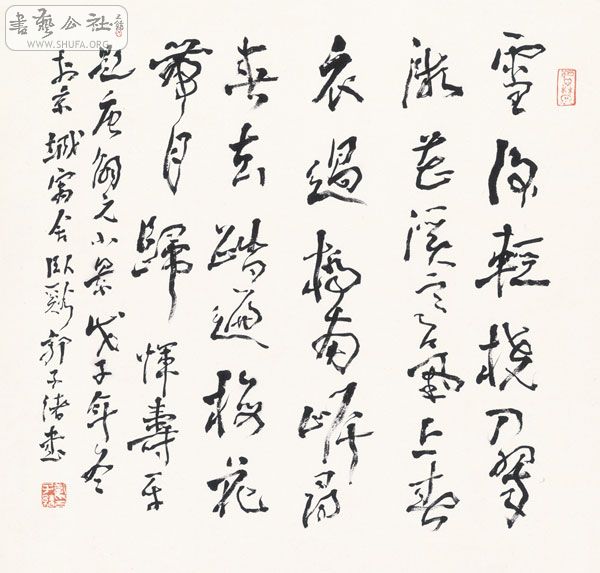 書藝公社
WWW.SHUFA.ORG
雪後輕橈入翠
微花溪寒氣上春
衣過橋南岸尋
春去踏遍梅花
帶月歸 惲壽平
題唐解元小景戊子年冬
於京城寓舍臥谿郭子緒書